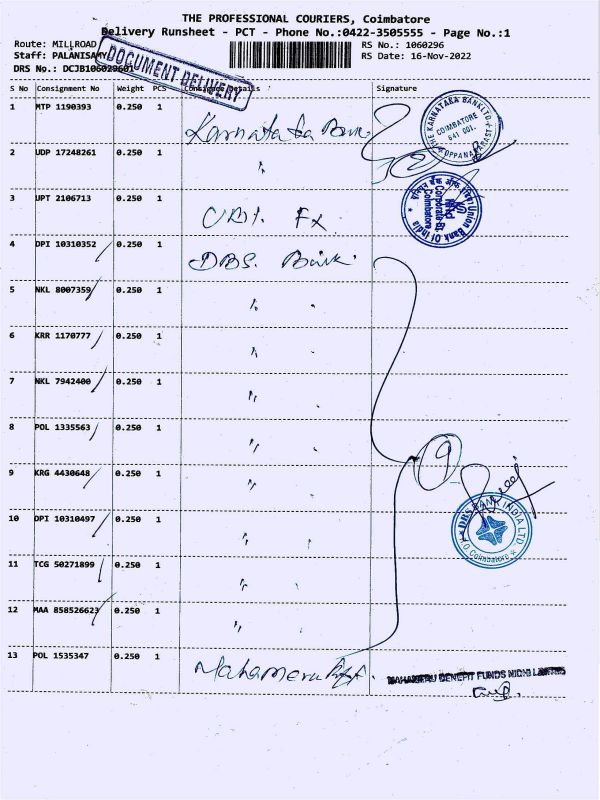 THE PROFESSIONAL COURIERS, Coimbatore
Delivery Runsheet - PCT - Phone No.:0422-3505555 - Page No.:1
Route: MILLROAD
RS No.: 1060296
Staff: PALANISAMY
RS Date: 16-Nov-2022
DRS No.: DCJB106029601
DOCUMENT DELIVERY
S No Consignment No Weight PCS Consignee Details Signature
1 MTP 1190393 0.250 1 Karnataka Bank
THE KARNATAKA BANK LTD
COIMBATORE
641 001.
2 UDP 17248261 0.250 1 "
3 UPT 2106713 0.250 1 UBI. Fx
Union Bank Of India
Corporate Br.
Coimbatore
4 DPI 10310352 0.250 1 DBS. Bank.
5 NKL 8007359 0.250 1 " "
6 KRR 1170777 0.250 1 " "
7 NKL 7942400 0.250 1 "
8 POL 1335563 0.250 1 " "
9 KRG 4430648 0.250 1 "
9
10 DPI 10310497 0.250 1 " "
DBS BANK INDIA LTD
Coimbatore
11 TCG 50271899 0.250 1 " "
12 MAA 858526623 0.250 1 " "
13 POL 1535347 0.250 1 Mahameru
MAHAMERU BENEFIT FUNDS NIDHI LIMITED